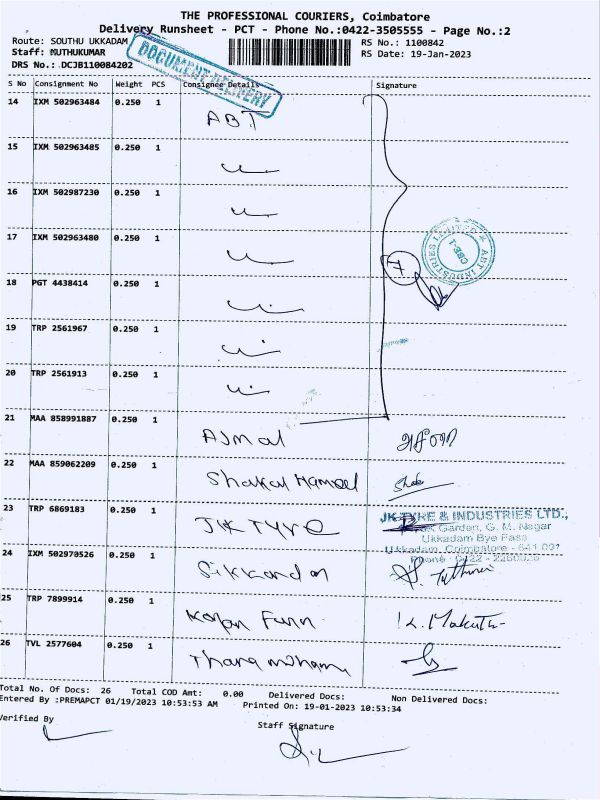 THE PROFESSIONAL COURIERS, Coimbatore
Delivery Runsheet - PCT - Phone No.:0422-3505555 - Page No.:2
Route: SOUTHU UKKADAM
RS No.: 1100842
Staff: MUTHUKUMAR
RS Date: 19-Jan-2023
DRS No.: DCJB110084202
DOCUMENT DELIVERY
S No Consignment No Weight PCS Consignee Details Signature
14 IXM 502963484 0.250 1 ABT
15 IXM 502963485 0.250 1
16 IXM 502987230 0.250 1
17 IXM 502963480 0.250 1
7
ABT INDUSTRIES LIMITED
CBE-1
18 PGT 4438414 0.250 1
19 TRP 2561967 0.250 1
20 TRP 2561913 0.250 1
21 MAA 858991887 0.250 1 AJmal
22 MAA 859062209 0.250 1 Shakal Hameed
23 TRP 6869183 0.250 1 JK TYRE
JK TYRE & INDUSTRIES LTD.,
Garden, G. M. Nagar
Ukkadam Bye Pass
Ukkadam, Coimbatore - 641 001
Phone : 0422 -
24 IXM 502970526 0.250 1
25 TRP 7899914 0.250 1
26 TVL 2577604 0.250 1
Total No. Of Docs: 26 Total COD Amt: 0.00 Delivered Docs: Non Delivered Docs:
Entered By :PREMAPCT 01/19/2023 10:53:53 AM Printed On: 19-01-2023 10:53:34
Verified By
Staff Signature